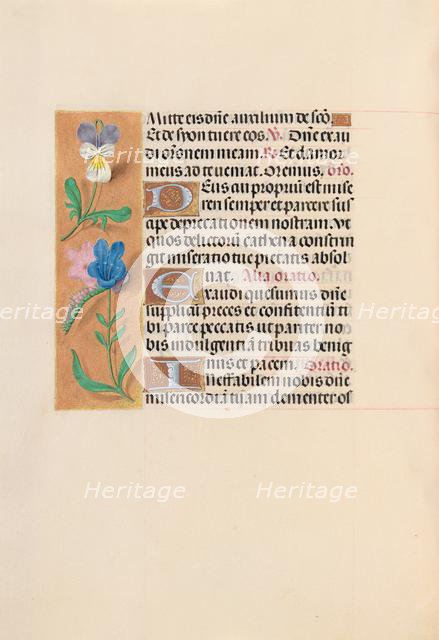 Mitte eis dñe auxilium de scõ.
Et de syon tuere eos. V. Dñe exau
di orõnem meam. R. Et clamor
meus ad te veniat. Oremus. orõ.
Deus cui proprium est mise
reri semper et parcere sus
cipe deprecationem nostram. Vt
quos delictorum cathena constrin
git miseratio tue pietatis absol
uat. Alia oratio.
Exaudi quesumus dñe
supplicum preces et confitentium ti
bi parce peccatis ut pariter no
bis indulgentiam tribuas benig
nus et pacem. Oratio.
Ineffabilem nobis dñe
misericordiam tuam clementer os
Heritage
Heritage
Heritage
Heritage
Heritage
Heritage
Heritage